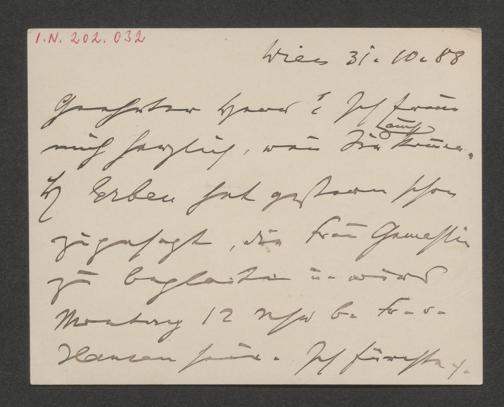 I.N. 202.032
Wien 31.10.88
Geehrter Herr! Ich freue
mich herzlich, wenn Sie
auch
H Erben hat gestern schon
zugesagt, die Frau Gemahlin
zu begleiten u. wird
Montag 12 Uhr b. Fr. v.
Hansen sein. Ich fürchte